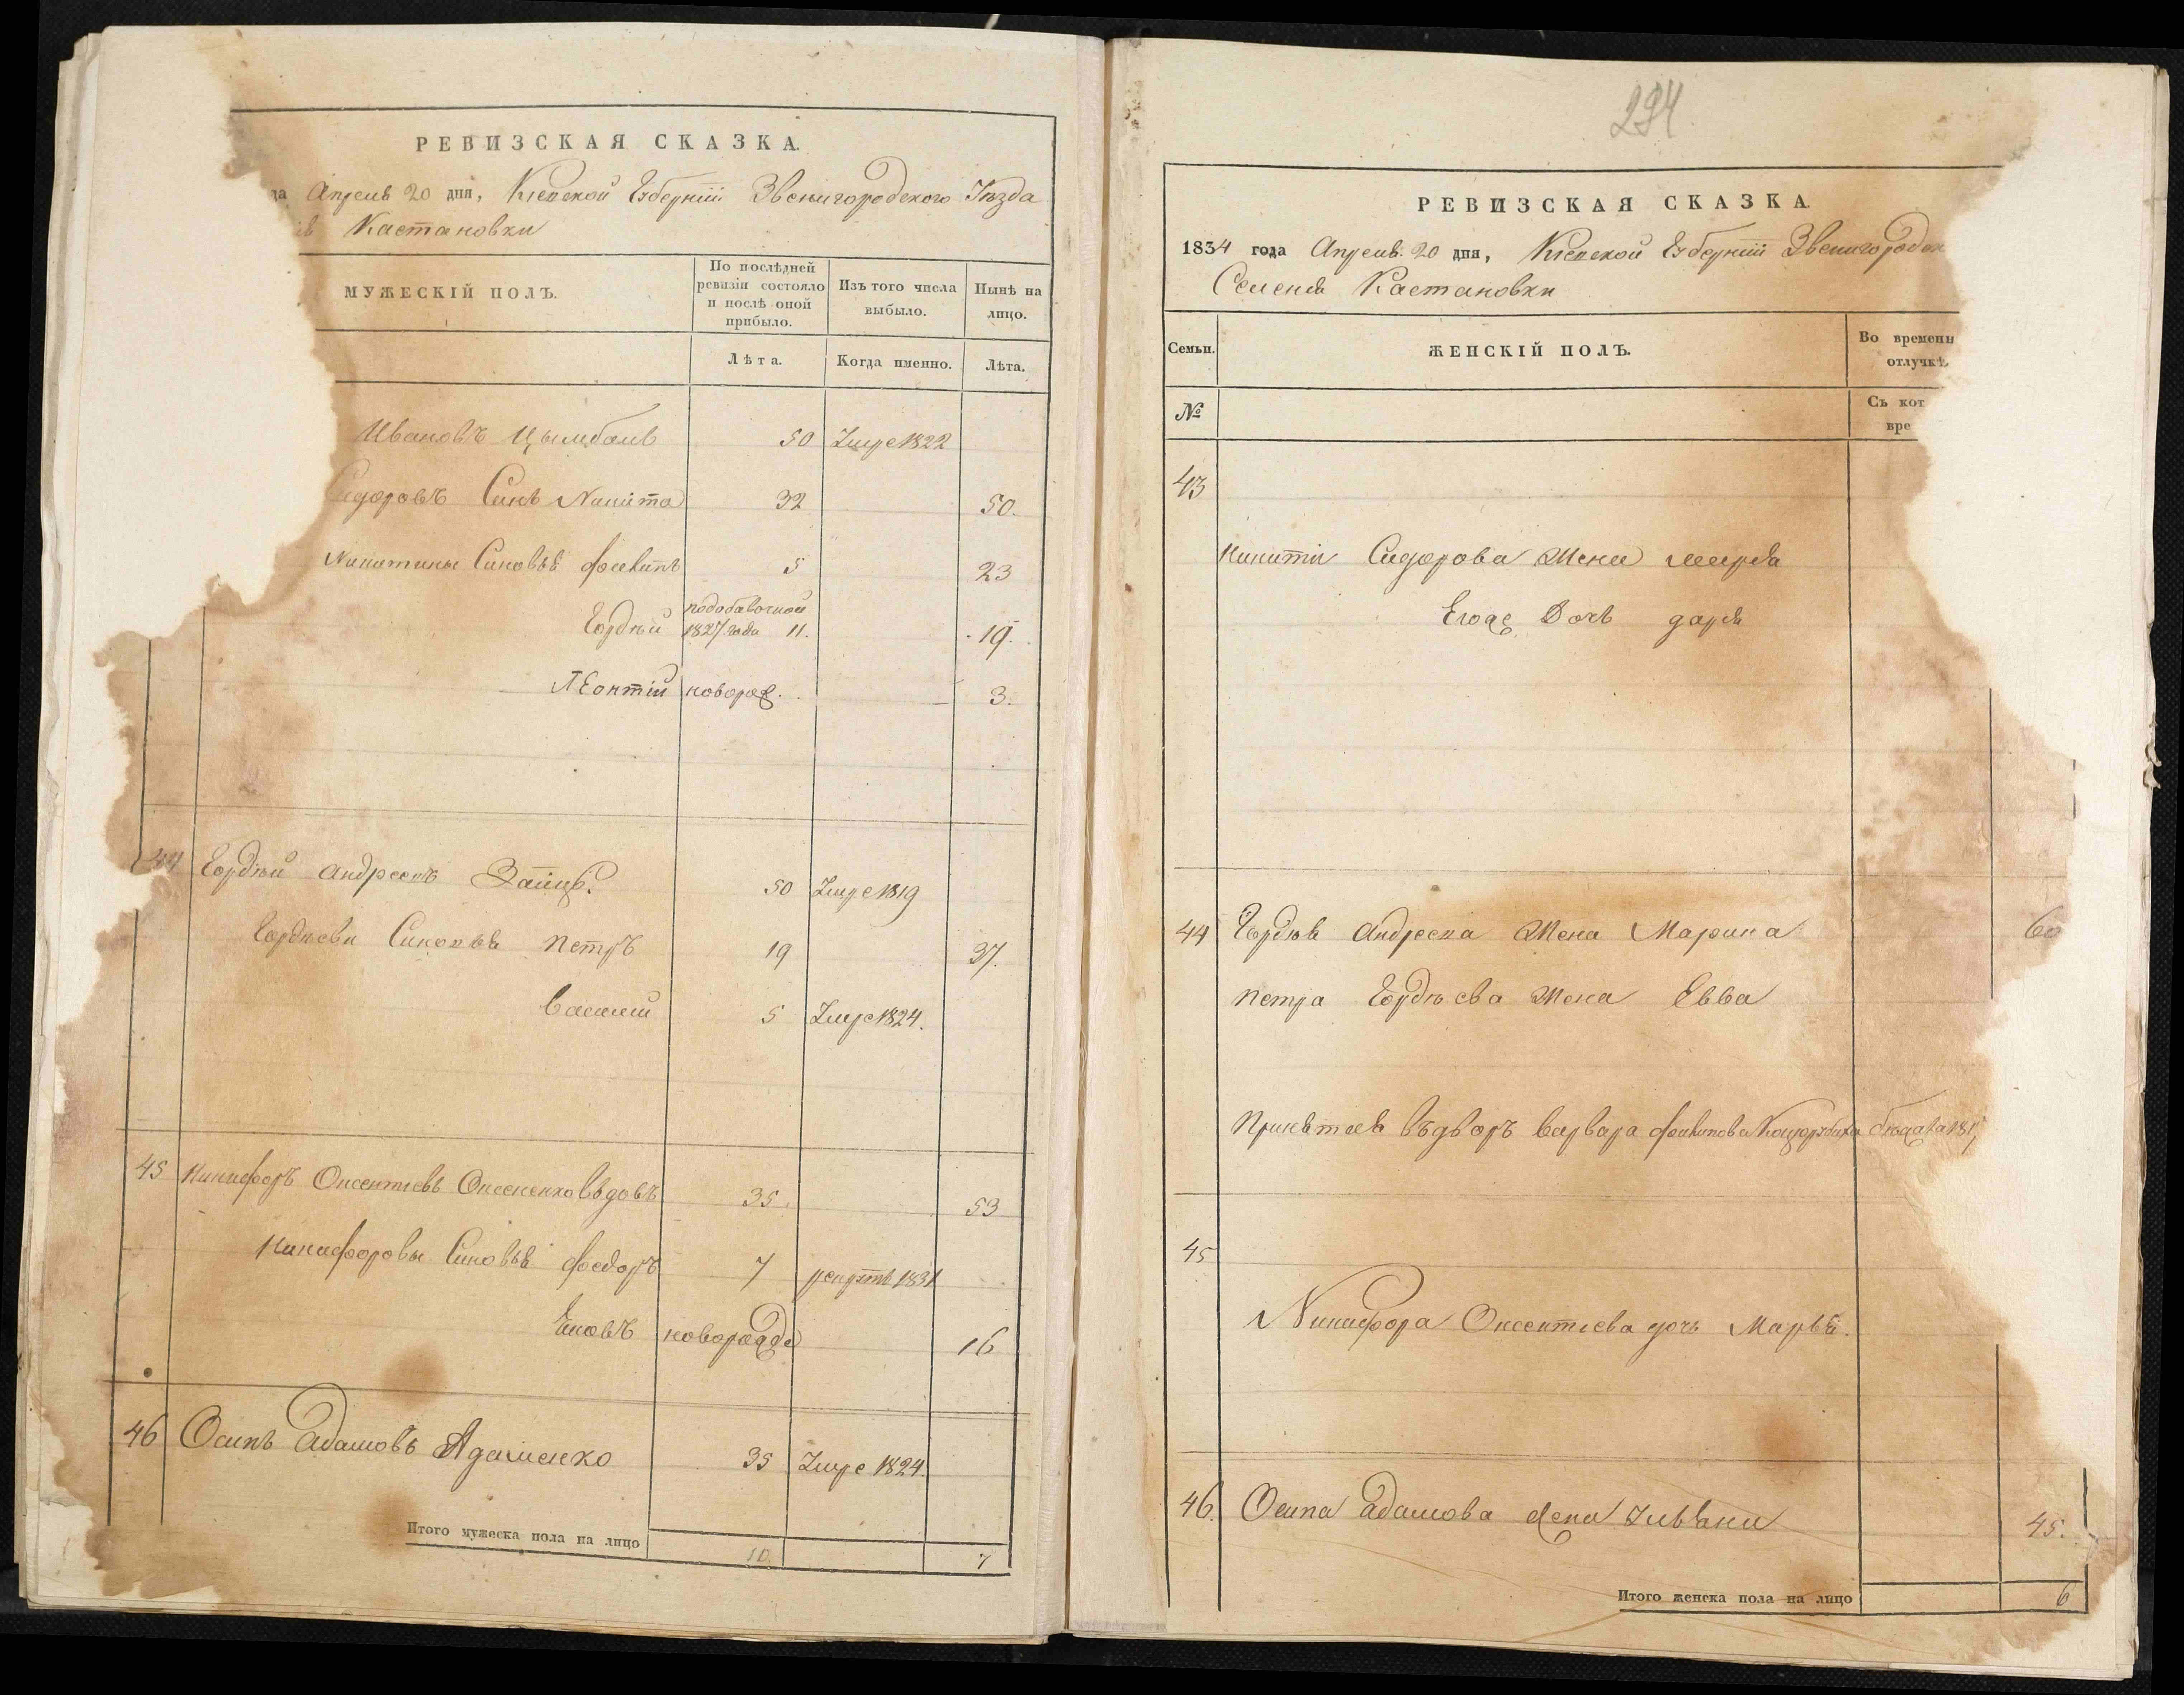 РЕВИЗСКАЯ СКАЗКА.
да Апреля 20 дня, Кіевской Губерніи Звенигородского Уѣзда
ія Кастановки
МУЖЕСКІЙ ПОЛЪ.
По послѣдней ревизіи состояло и послѣ оной прибыло.
Изъ того числа выбыло.
Нынѣ на лицо.
Лѣта.
Когда именно.
Лѣта.
Ивановъ Цымбалъ 50 Умре 1822
Сидоровъ Синъ Никита 32 50.
Никитины Синовья Филипъ 5 23
Гордѣй подобавочной 1827 года 11. 19.
Леонтій поворожд. 3.
44 Гордѣй Андреевъ Заицъ. 50 Умре 1819
Гордѣеви Синовья Петръ 19 37.
Василій 5 Умре 1824.
45 Никифоръ Оксентіевъ Оксененко Вдовъ 35. 53
Никифоровы Синовья Федоръ 7 рекрутъ 1831
Яковъ новорожде 16
46 Осипъ Адамовъ Адаменко 35 Умре 1824.
Итого мужеска пола на лицо 10. 7
294
РЕВИЗСКАЯ СКАЗКА.
1834 года Апреля 20 дня, Кіевской Губерніи Звенигородск
Селенія Кастановки
Семьи.
ЖЕНСКІЙ ПОЛЪ.
Во времени
отлучкѣ
№
Съ кот
вре
43
Никити Сидорова Жена Марія
Егожъ Дочь Дарія
44 Гордѣя Андреева Жена Марина 60
Петра Гордѣева Жена Евва
въдворъ Варвара Филипова
45
Никифора Оксентіева дочь Марья.
46. Осипа Адамова жена Улияни 45.
Итого женска пола на лицо 6